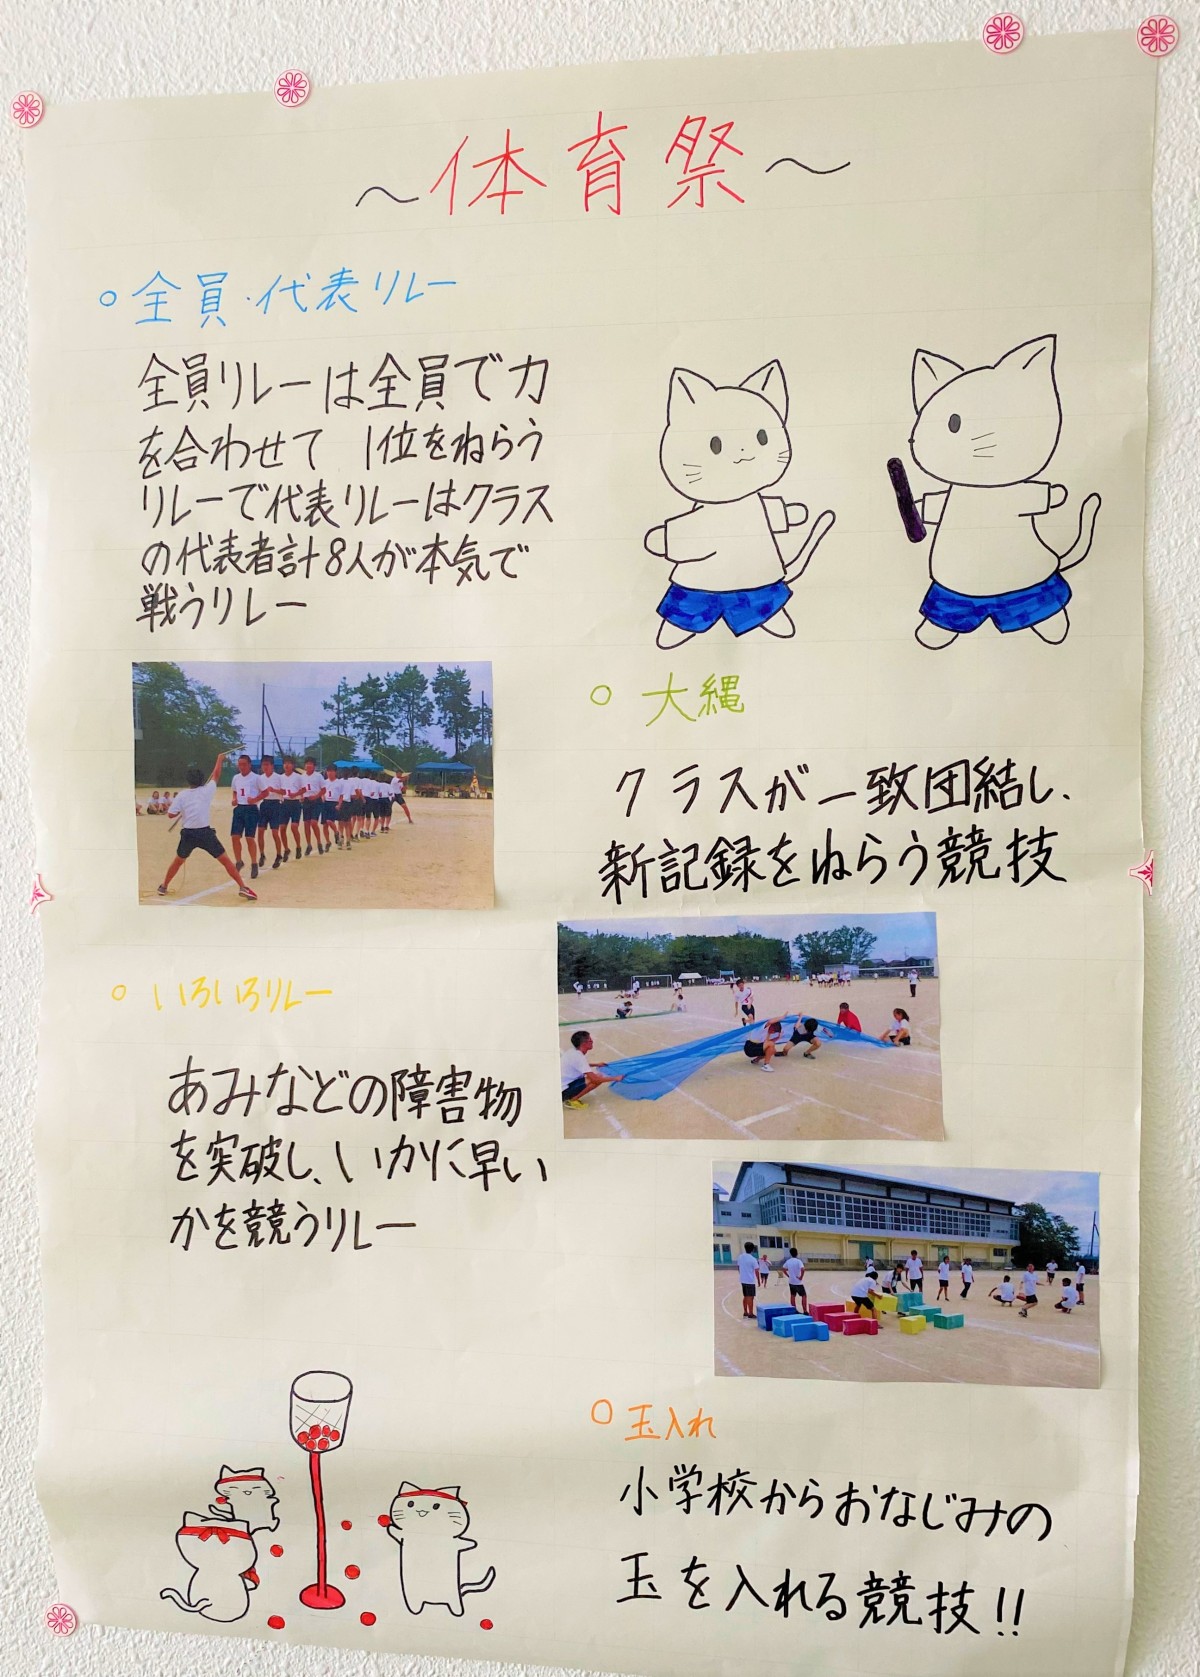 ～体育祭～
○全員・代表リレー
全員リレーは全員で力
を合わせて 1位をねらう
リレーで代表リレーはクラス
の代表者計8人が本気で
戦うリレー
○大縄
クラスが一致団結し、
新記録をねらう競技
○いろいろリレー
あみなどの障害物
を突破し、いかに早い
かを競うリレー
○玉入れ
小学校からおなじみの
玉を入れる競技!!